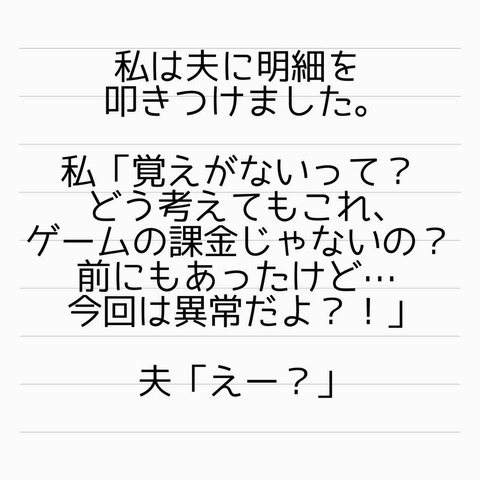 私は夫に明細を
叩きつけました。
私「覚えがないって？
どう考えてもこれ、
ゲームの課金じゃないの？
前にもあったけど…
今回は異常だよ？！」
夫「えー？」